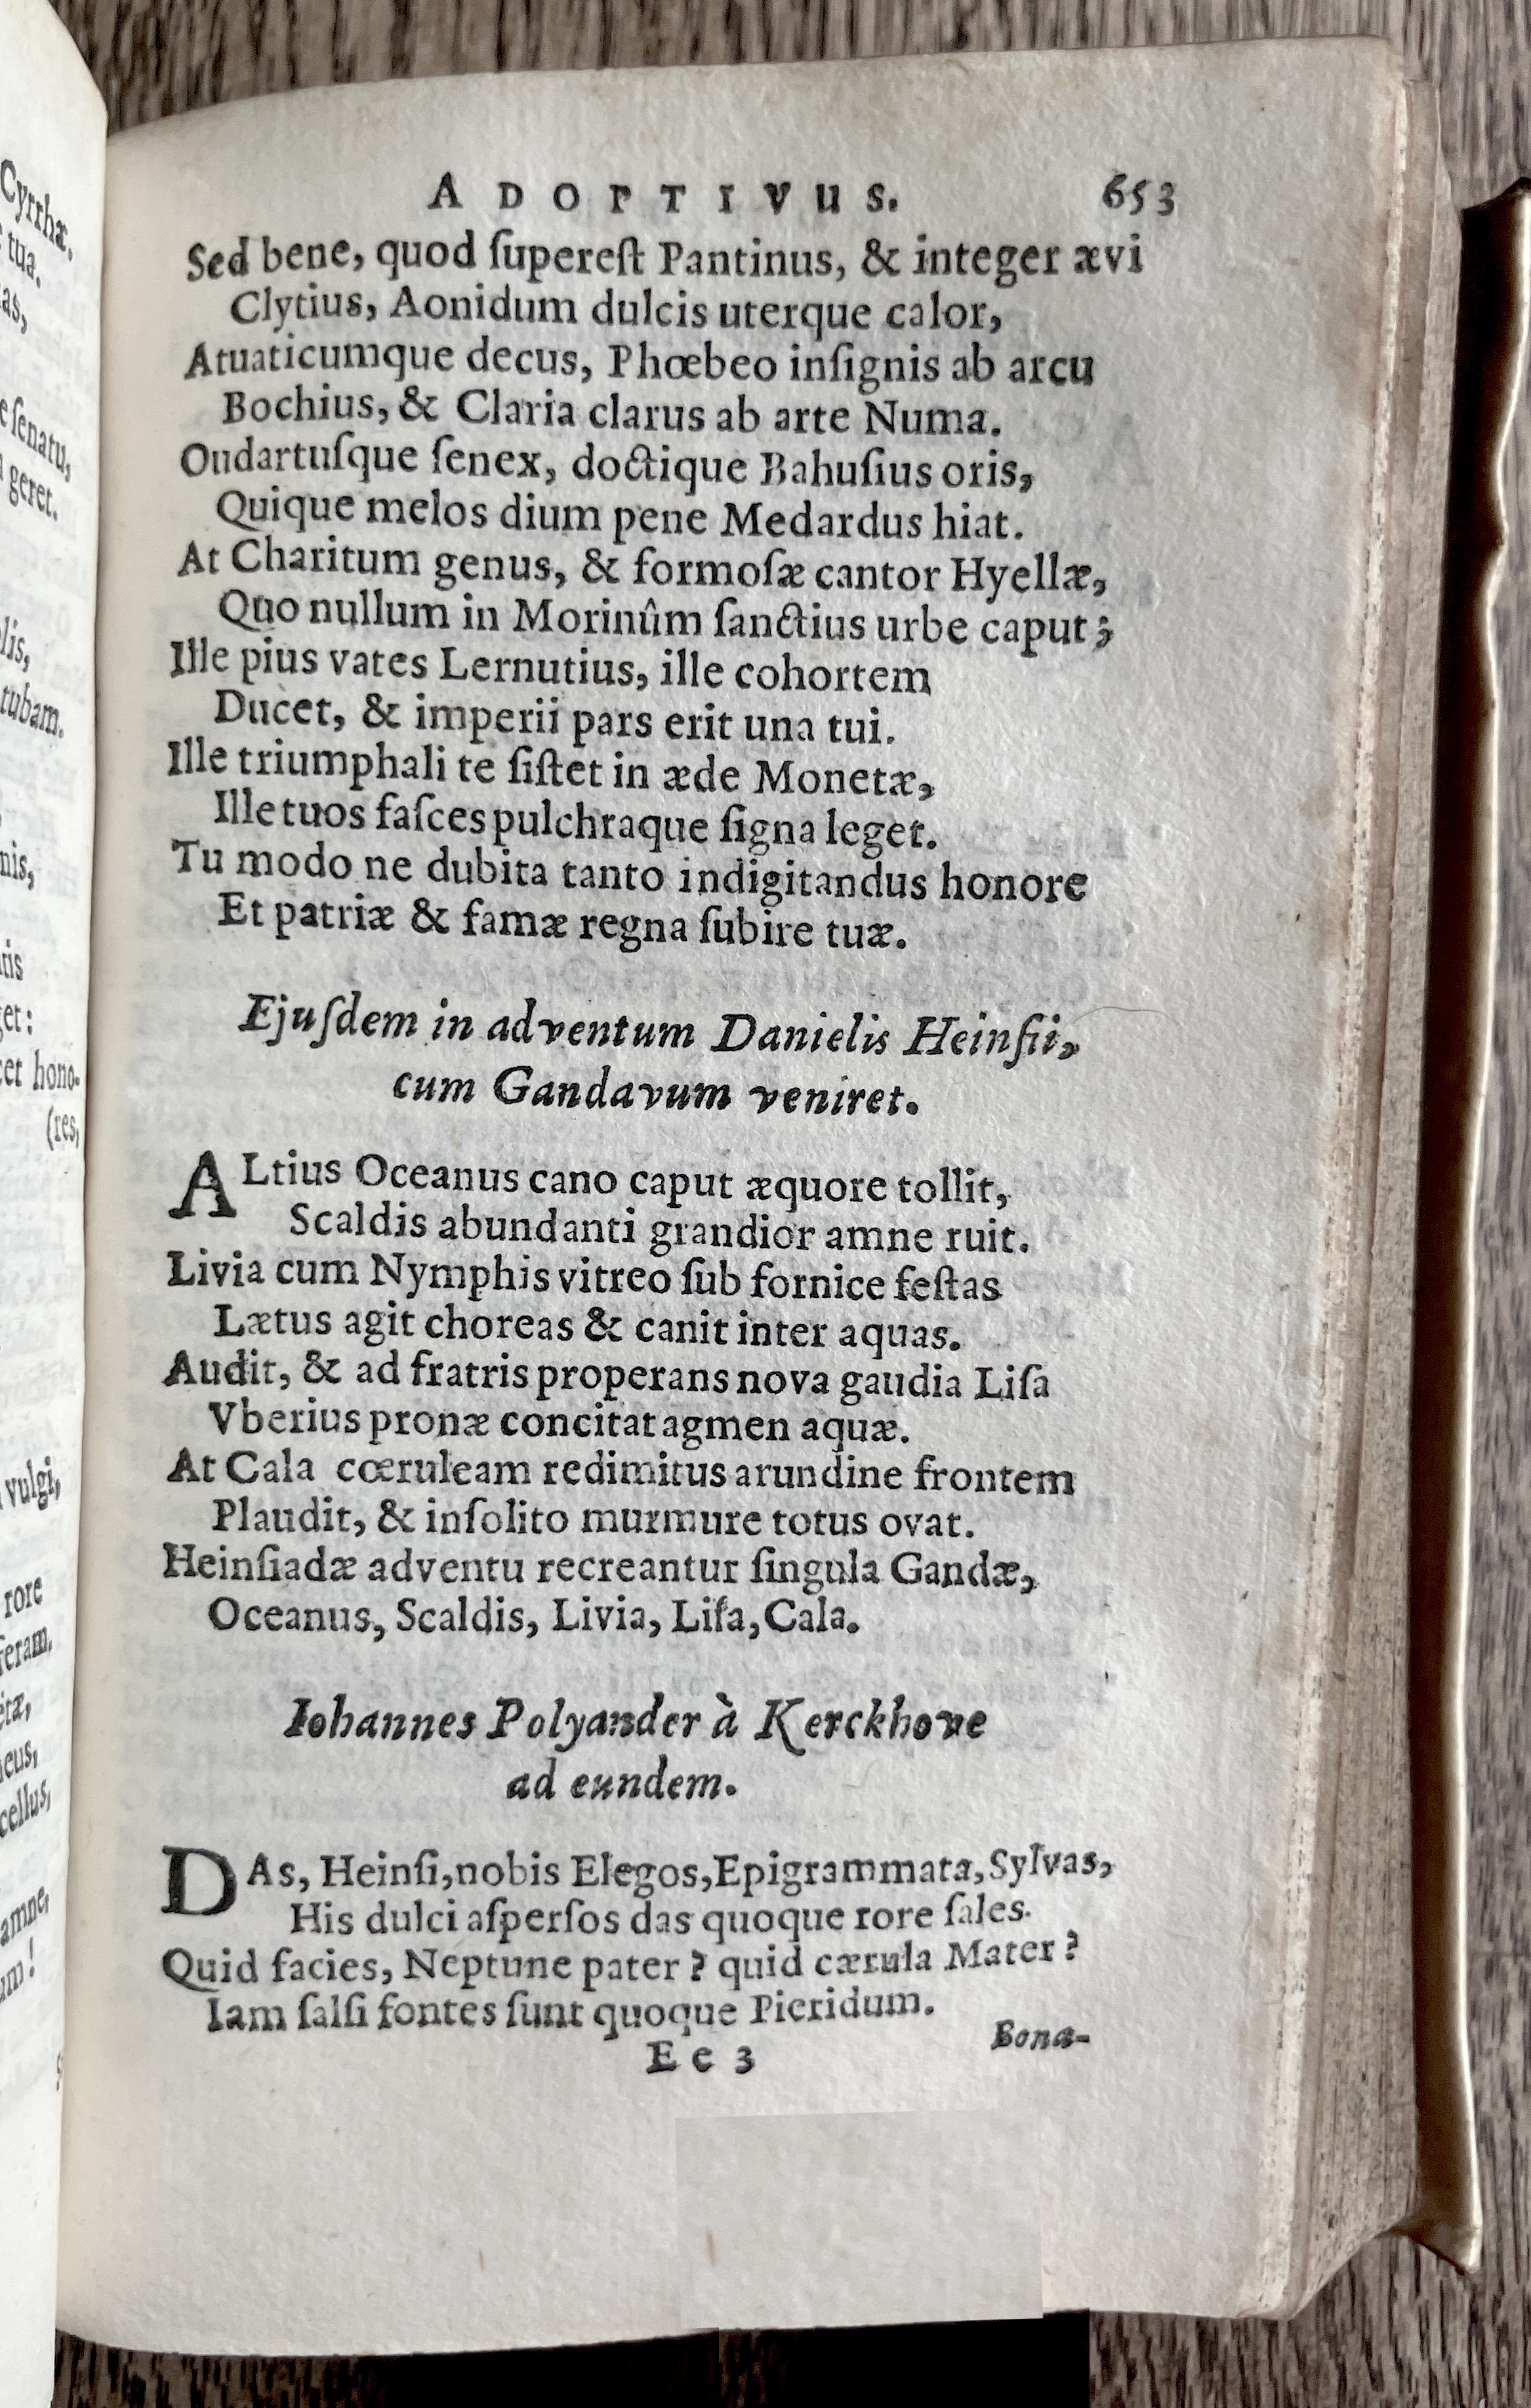 ADOPTIVUS. 653
Sed bene, quod ſupereſt Pantinus, & integer ævi
Clytius, Aonidum dulcis uterque calor,
Atuaticumque decus, Phœbeo inſignis ab arcu
Bochius, & Claria clarus ab arte Numa.
Oudartuſque ſenex, doctique Bahuſius oris,
Quique melos dium pene Medardus hiat.
At Charitum genus, & formoſæ cantor Hyellæ,
Quo nullum in Morinûm ſanctius urbe caput;
Ille pius vates Lernutius, ille cohortem
Ducet, & imperii pars erit una tui.
Ille triumphali te ſiſtet in æde Monetæ,
Ille tuos faſces pulchraque ſigna leget.
Tu modo ne dubita tanto indigitandus honore
Et patriæ & famæ regna ſubire tuæ.
Ejuſdem in adventum Danielis Heinſii,
cum Gandavum veniret.
ALtius Oceanus cano caput æquore tollit,
Scaldis abundanti grandior amne ruit.
Livia cum Nymphis vitreo ſub fornice feſtas
Lætus agit choreas & canit inter aquas.
Audit, & ad fratris properans nova gaudia Liſa
Vberius pronæ concitat agmen aquæ.
At Cala cœruleam redimitus arundine frontem
Plaudit, & inſolito murmure totus ovat.
Heinſiadæ adventu recreantur ſingula Gandæ,
Oceanus, Scaldis, Livia, Liſa, Cala.
Iohannes Polyander à Kerckhove
ad eundem.
DAs, Heinſi, nobis Elegos, Epigrammata, Sylvas,
His dulci aſperſos das quoque rore ſales.
Quid facies, Neptune pater? quid cærula Mater?
Iam ſalſi fontes ſunt quoque Pieridum.
Ee 3 Bona-